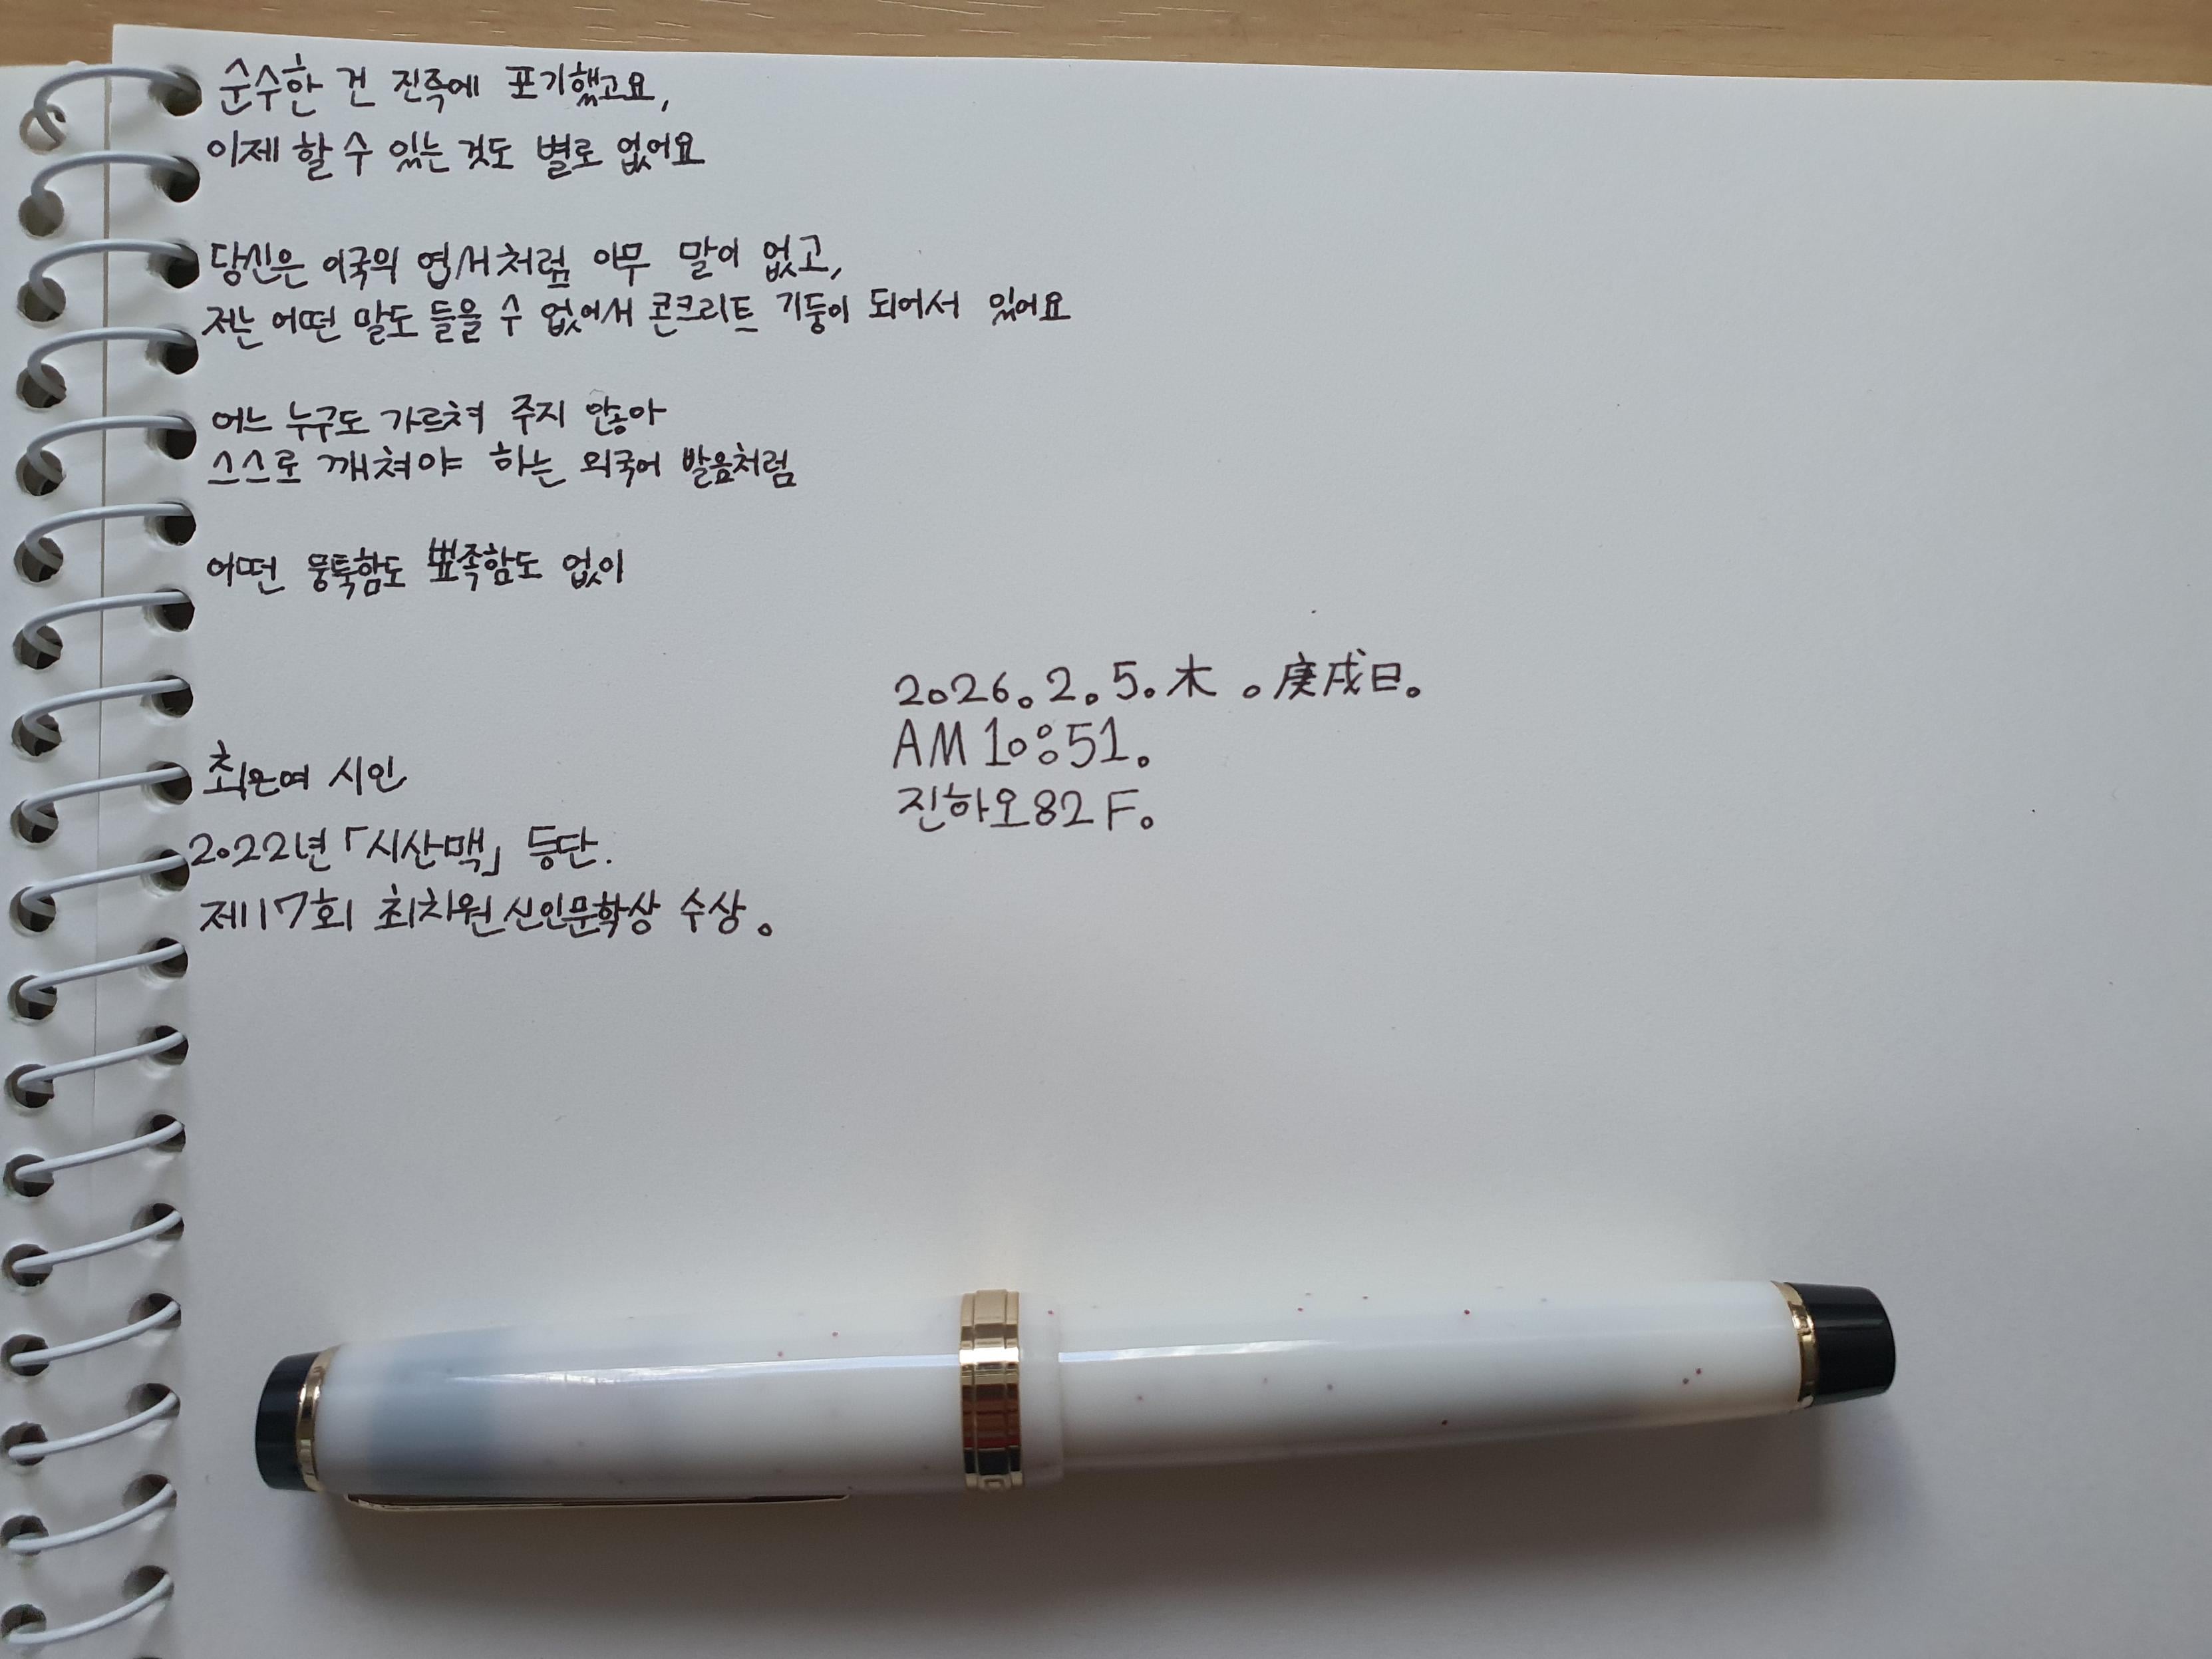 순수한 건 진즉에 포기했고요,
이제 할 수 있는 것도 별로 없어요
당신은 이국의 엽서처럼 아무 말이 없고,
저는 어떤 말도 들을 수 없어서 콘크리트 기둥이 되어서 있어요
어느 누구도 가르쳐 주지 않아
스스로 깨쳐야 하는 외국어 발음처럼
어떤 뭉툭함도 뾰족함도 없이
최은여 시인
2022년 「시산맥」 등단.
제17회 최치원신인문학상 수상。
2026。2。5。木。庚戌日。
AM 10:51。
진하오82 F。